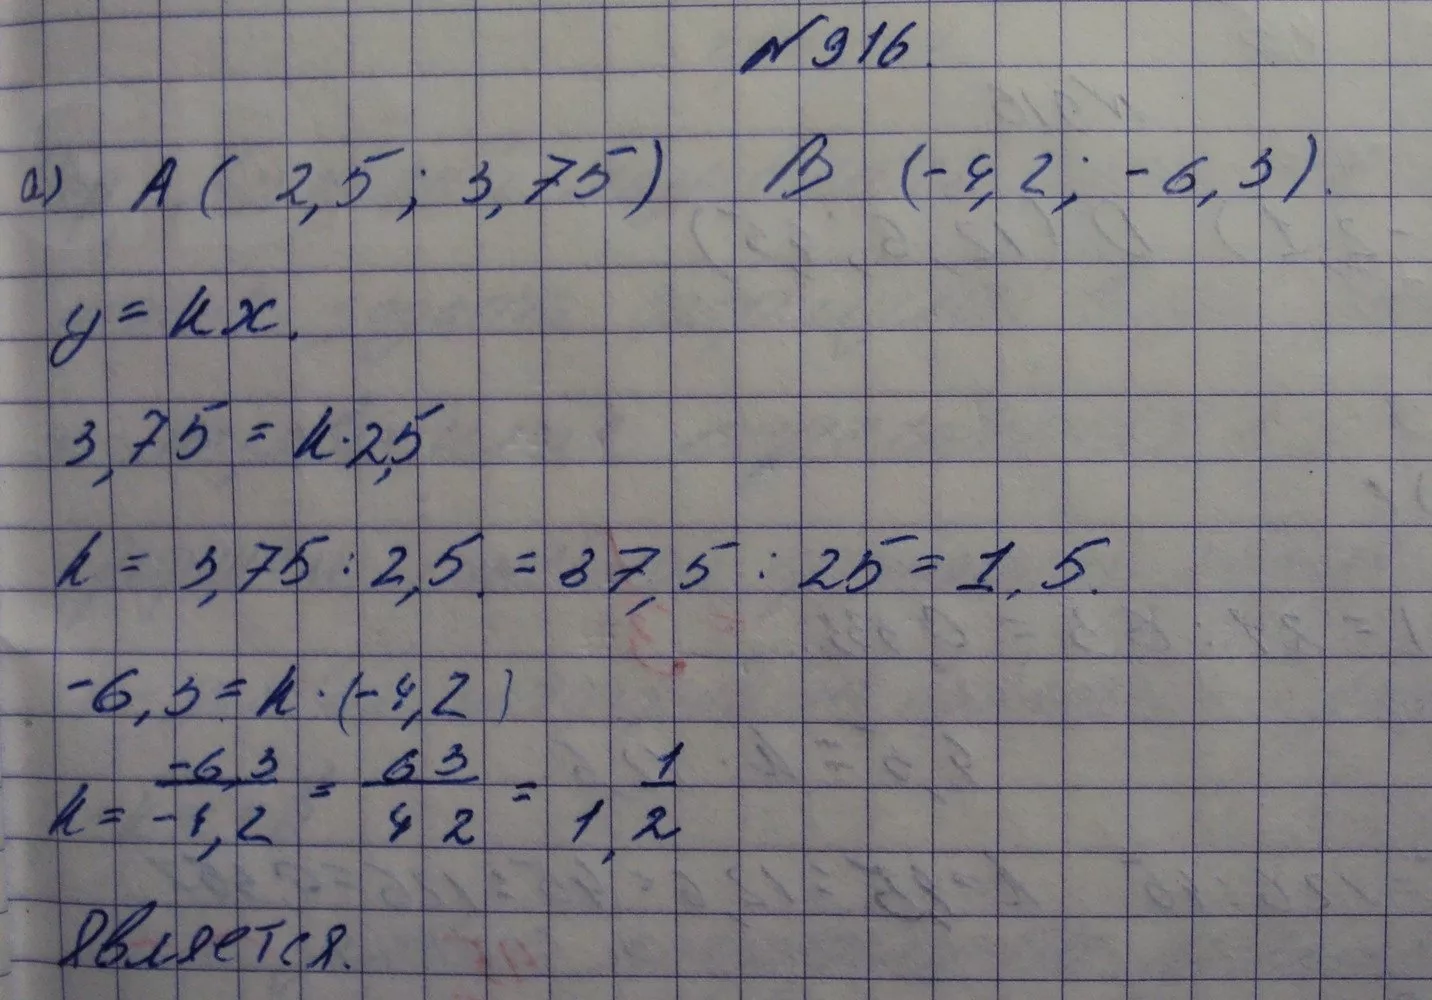 №916.
а) A ( 2,5 ; 3,75 ) B (-4,2 ; -6,3).
y = kx.
3,75 = k·2,5
k = 3,75 : 2,5 = 37,5 : 25 = 1,5.
-6,3 = k · (-4,2)
k = -6,3/-4,2 = 63/42 = 1, 1/2
является.